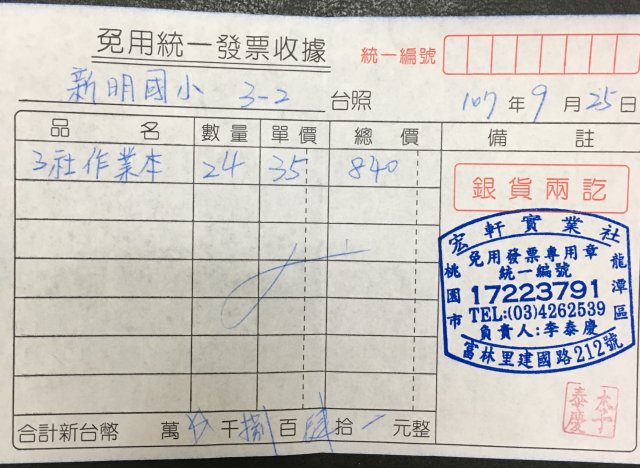 免用統一發票收據
統一編號
新明國小 3-2 台照
107 年 9 月 25 日
品 名 數量 單價 總 價 備 註
3社作業本 24 35 840
銀貨兩訖
宏軒實業社
免用發票專用章
統一編號
17223791
TEL:(03)4262539
負責人:李泰慶
桃園市
龍潭區
富林里建國路212號
合計新台幣 萬 千捌百肆拾 元整
李泰慶